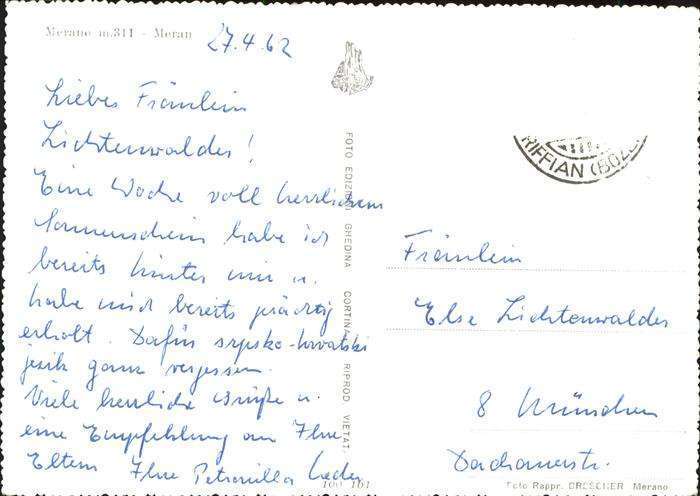 Merano m.311 - Meran
27.4.62
Liebes Fräulein
Lichtenwalder!
Eine Woche voll herrlichem
Sonnenschein habe ich
bereits hinter mir u.
habe mich bereits prächtig
erholt. Dafür srpsko-hrvatski
jezik ganz vergessen.
Viele herzliche Grüße u.
eine Empfehlung an Ihre
Eltern Ihre Petronilla
FOTO EDIZIONI GHEDINA CORTINA RIPROD VIETAT.
RIFFIAN (BOZE
Fräulein
Else Lichtenwalder
8 München
Dachauerstr.
100 161
Foto Rappr. DRESCHER Merano